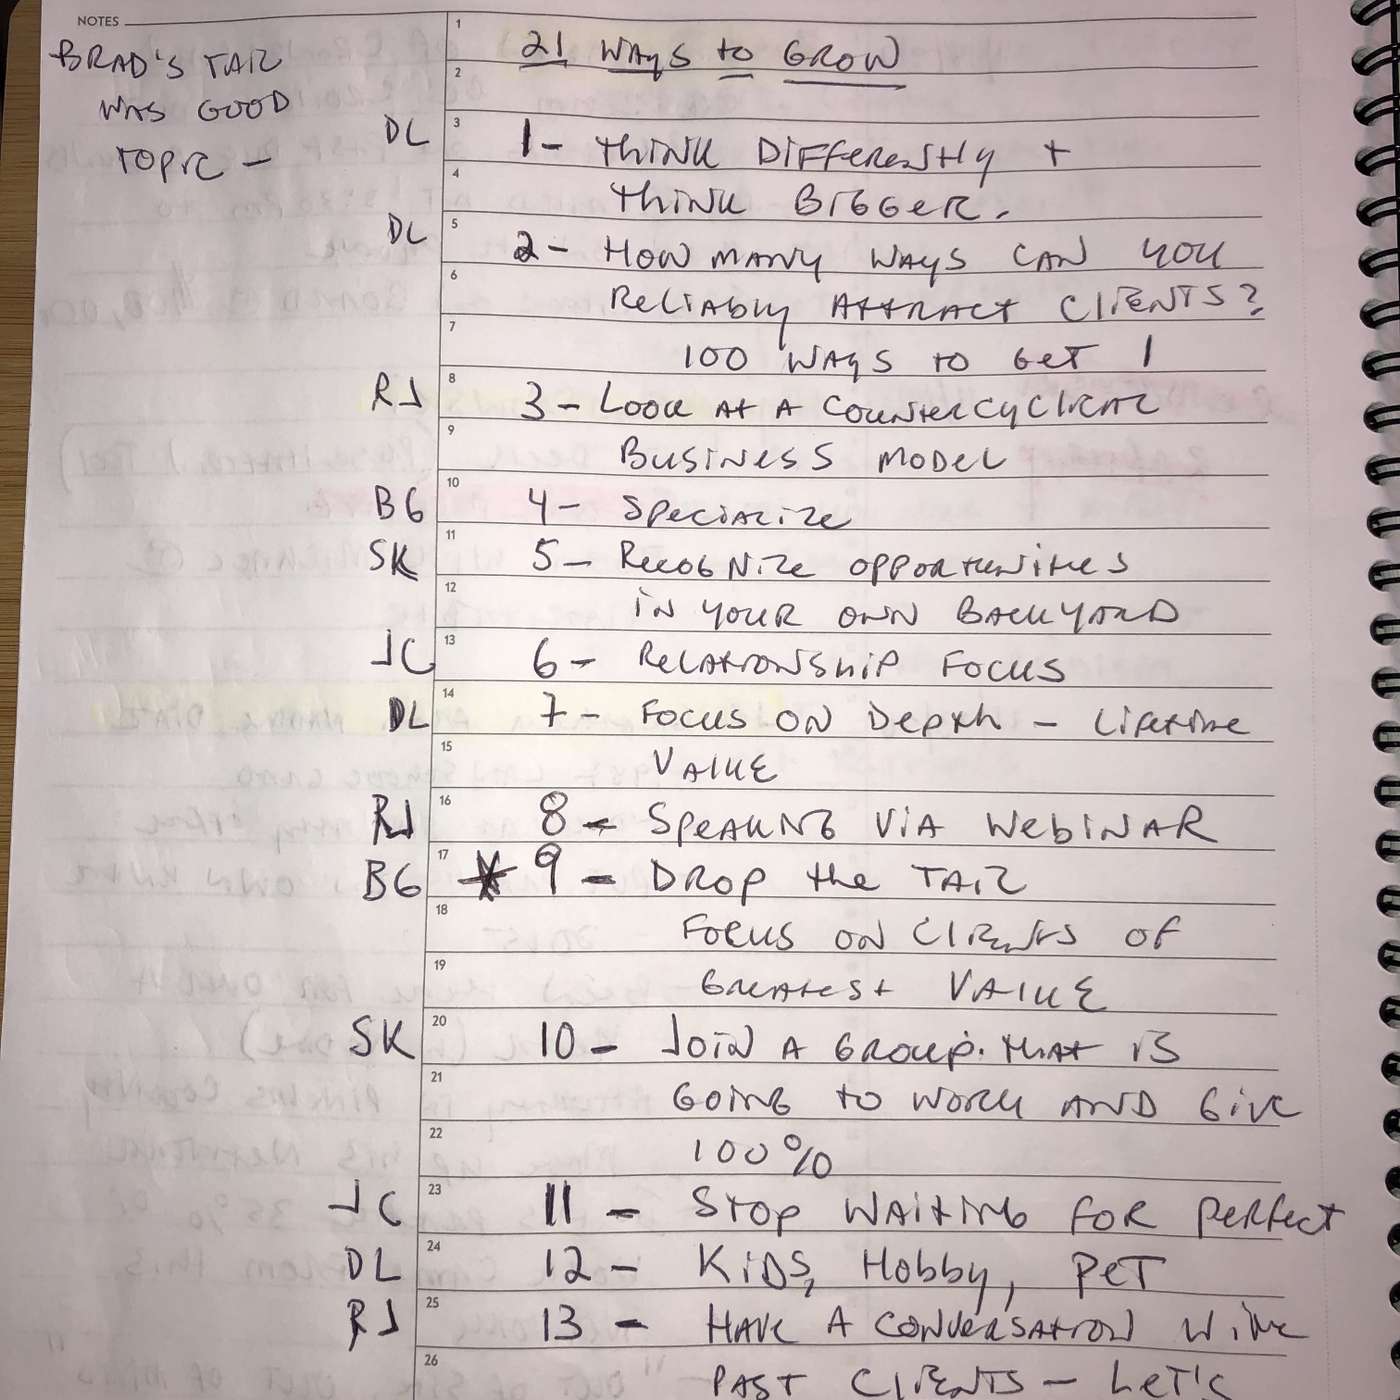 NOTES
BRAD'S TAIL
WAS GOOD
TOPIC –
1
21 WAYS to GROW
2
3
DL 1- THINK DIFFERENTLY +
4
THINK BIGGER.
5
DL 2- HOW MANY WAYS CAN YOU
6
RELIABLY ATTRACT CLIENTS?
7
100 WAYS TO GET 1
8
RJ 3- LOOK AT A COUNTERCYCLICAL
9
BUSINESS MODEL
10
BG 4- SPECIALIZE
11
SK 5- RECOGNIZE OPPORTUNITIES
12
IN YOUR OWN BACKYARD
13
JC 6- RELATIONSHIP FOCUS
14
DL 7- FOCUS ON DEPTH – LIFETIME
15
VALUE
16
RJ 8- SPEAKING VIA WEBINAR
17
BG * 9- DROP the TAIL
18
FOCUS ON CLIENTS OF
19
GREATEST VALUE
20
SK 10- JOIN A GROUP. THAT IS
21
GOING TO WORK AND GIVE
22
100%
23
JC 11- STOP WAITING FOR PERFECT
24
DL 12- KIDS, HOBBY, PET
25
RJ 13- HAVE A CONVERSATION WITH
26
PAST CLIENTS – LET'S